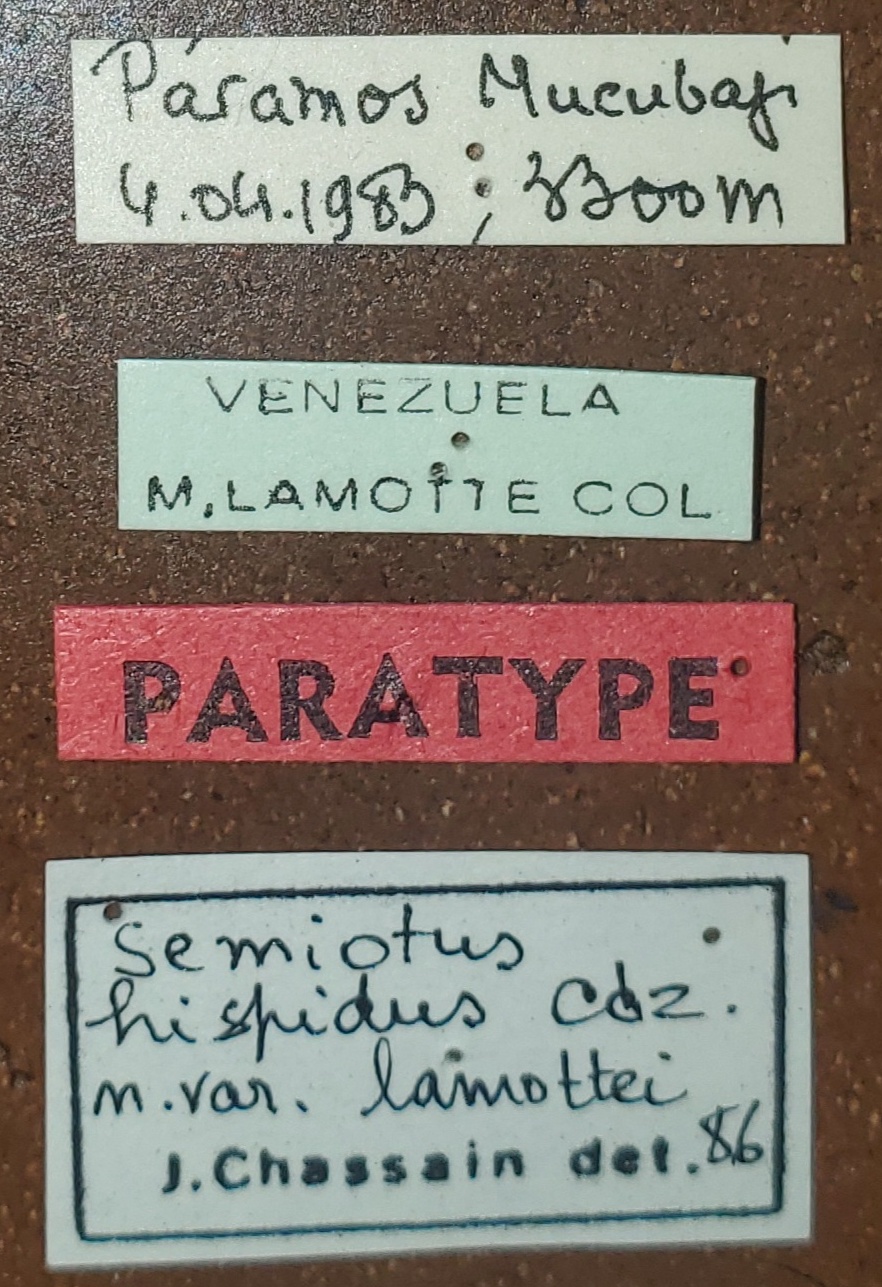 Páramos Mucubaji
4.04.1983 ; 3300m
VENEZUELA
M.LAMOTTE COL
PARATYPE
Semiotus
hispidus Cdz.
n.var. lamottei
J.Chassain det.86